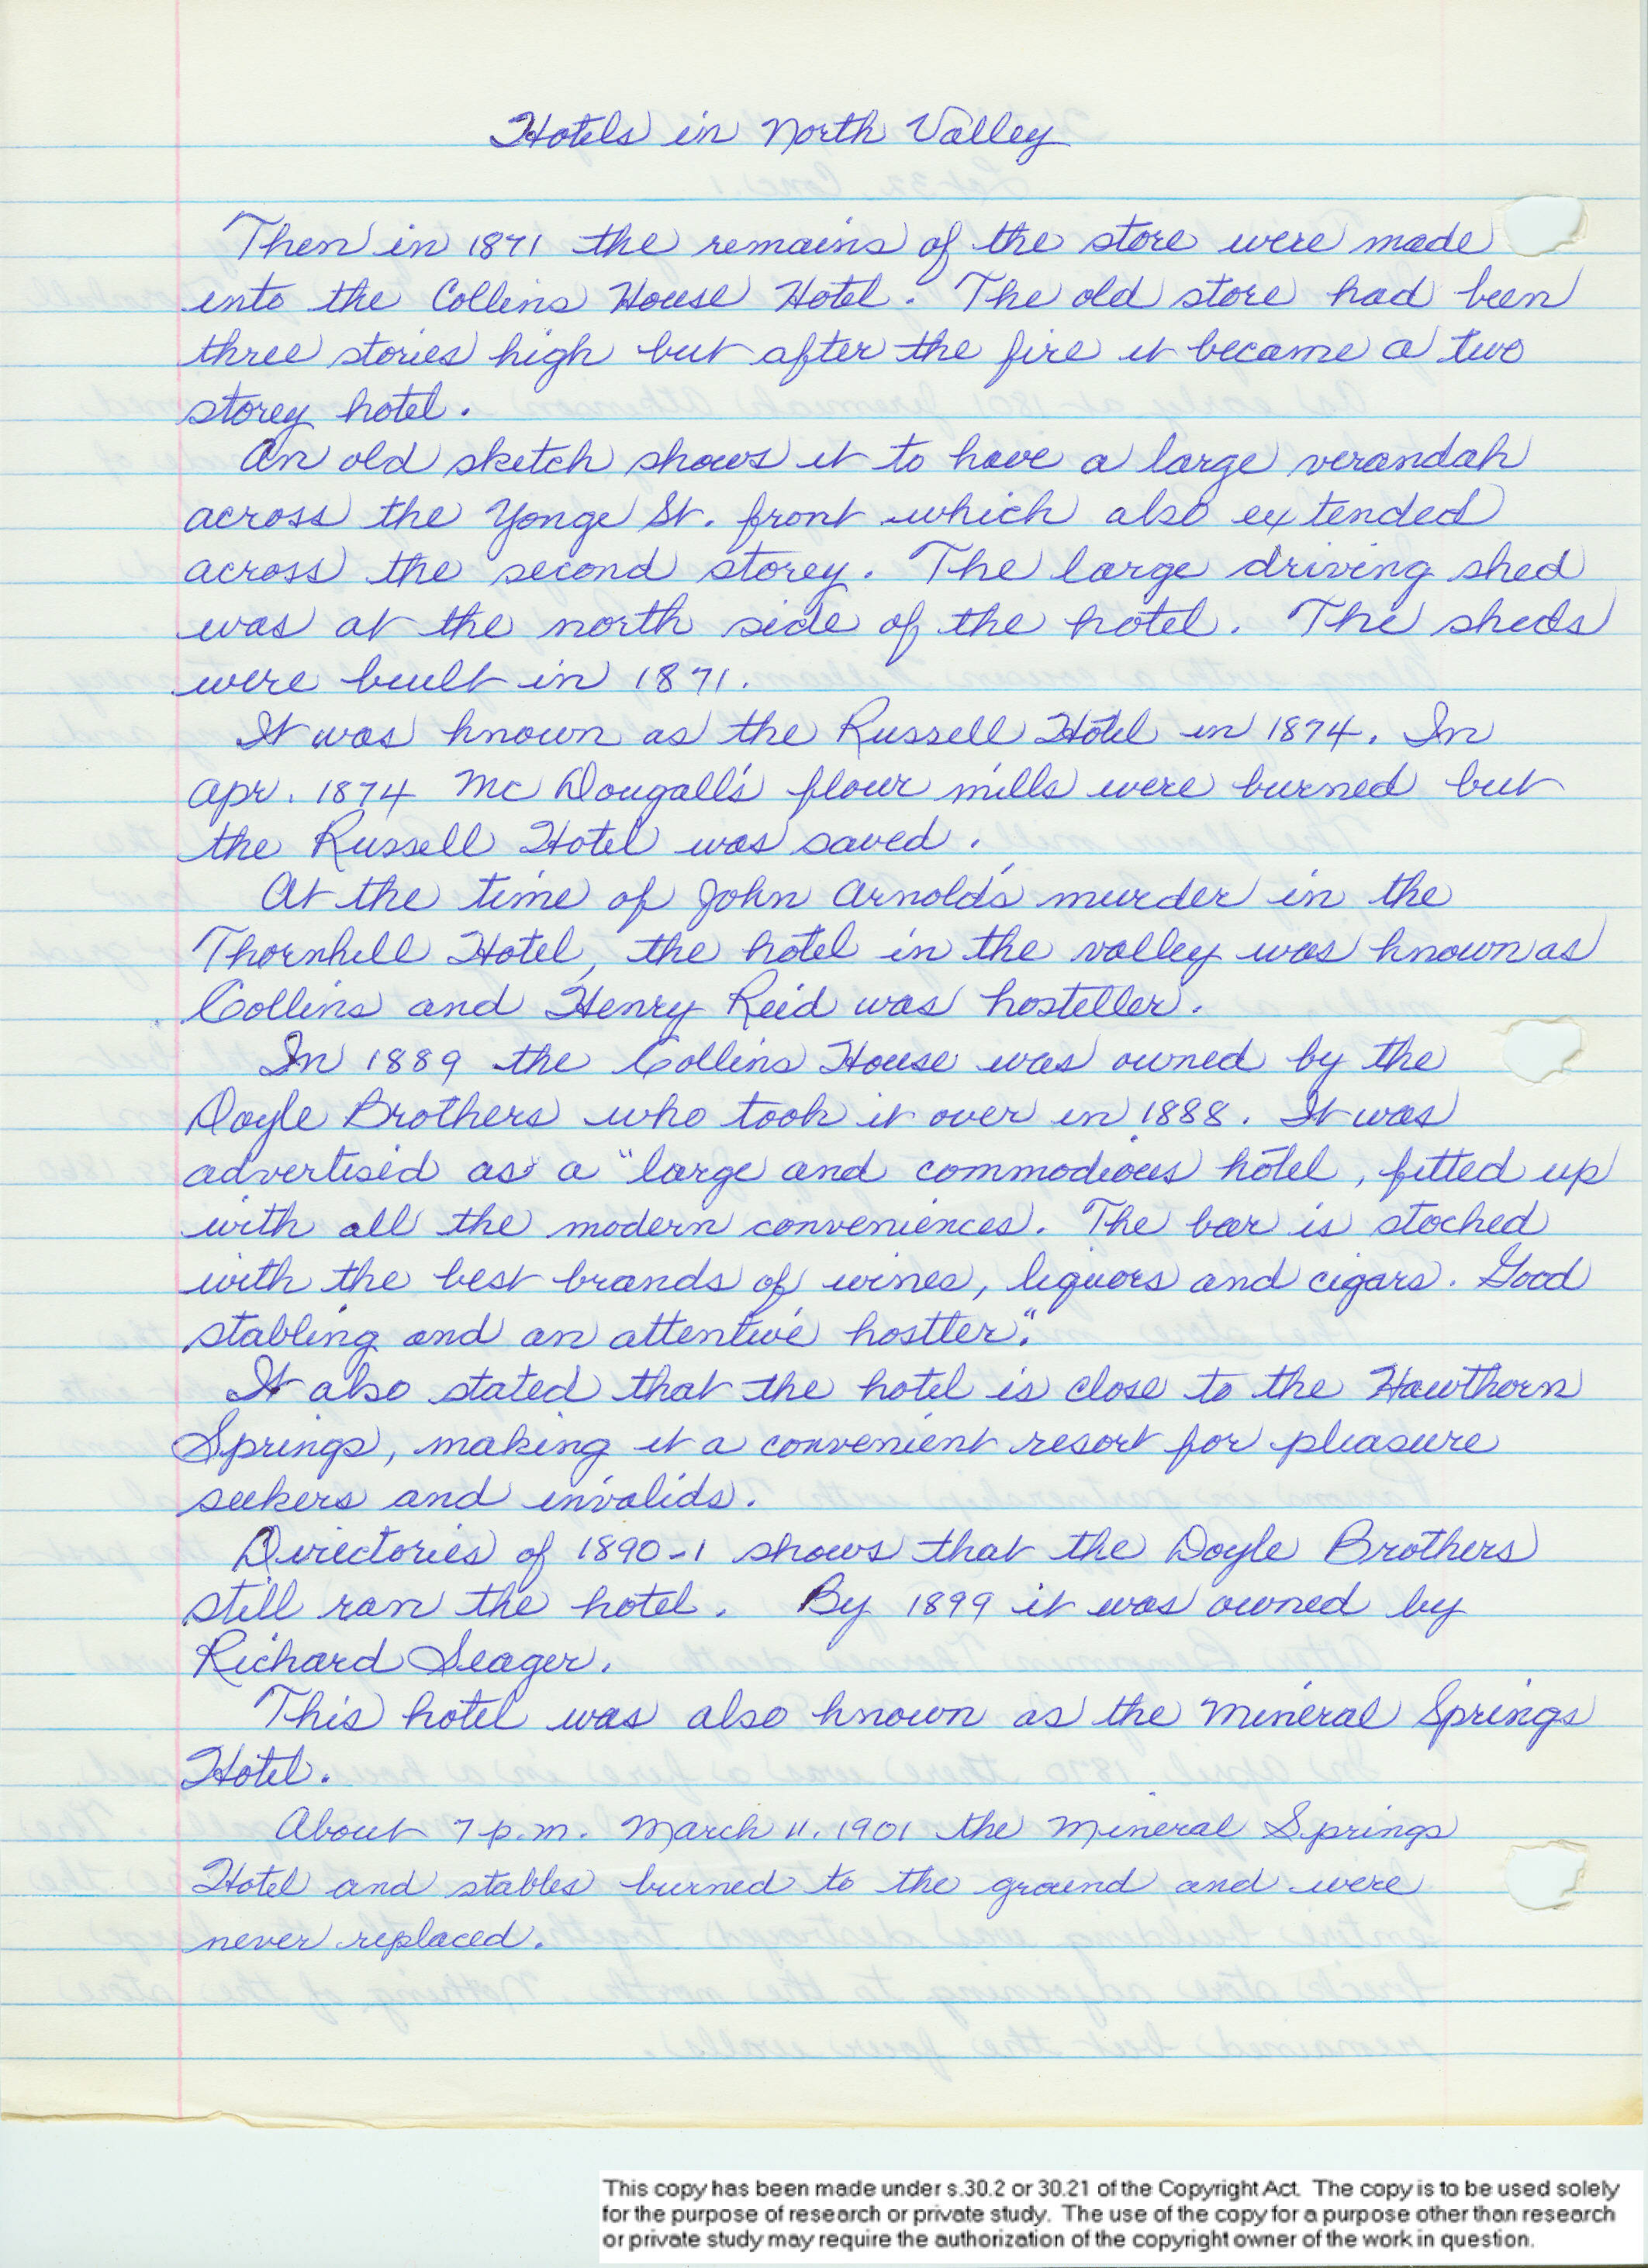 Hotels in North Valley
Then in 1871 the remains of the store were made
into the Collins House Hotel. The old store had been
three stories high but after the fire it became a two
storey hotel.
An old sketch shows it to have a large verandah
across the Yonge St. front which also extended
across the second storey. The large driving shed
was at the north side of the hotel. The sheds
were built in 1871.
It was known as the Russell Hotel in 1874. In
Apr. 1874 McDougall's flour mills were burned but
the Russell Hotel was saved.
At the time of John Arnold's murder in the
Thornhill Hotel, the hotel in the valley was known as
Collins and Henry Reid was hosteller.
In 1889 the Collins House was owned by the
Doyle Brothers who took it over in 1888. It was
advertised as a "large and commodious hotel, fitted up
with all the modern conveniences. The bar is stocked
with the best brands of wines, liquors and cigars. Good
stabling and an attentive hostler."
It also stated that the hotel is close to the Hawthorn
Springs, making it a convenient resort for pleasure
seekers and invalids.
Directories of 1890-1 shows that the Doyle Brothers
still ran the hotel. By 1899 it was owned by
Richard Seager.
This hotel was also known as the Mineral Springs
Hotel.
About 7 p.m. March 11, 1901 the Mineral Springs
Hotel and stables burned to the ground and were
never replaced.
This copy has been made under s.30.2 or 30.21 of the Copyright Act. The copy is to be used solely
for the purpose of research or private study. The use of the copy for a purpose other than research
or private study may require the authorization of the copyright owner of the work in question.